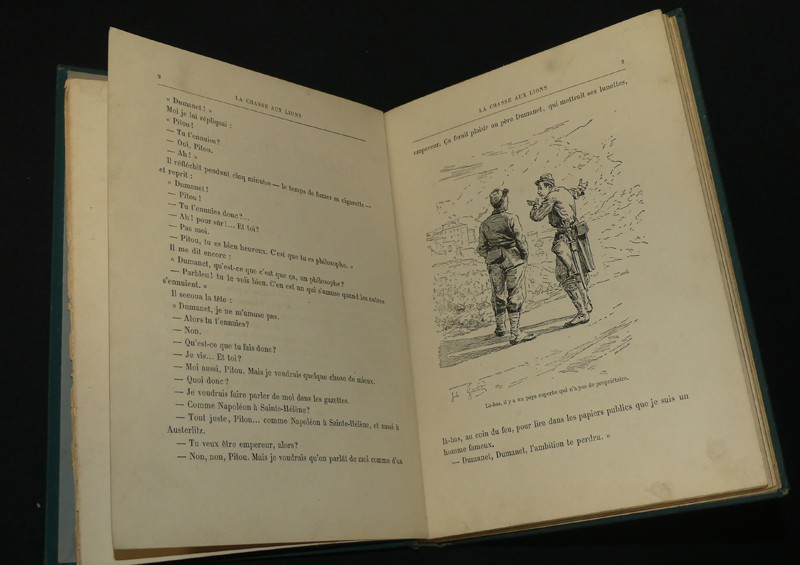 2
LA CHASSE AUX LIONS
« Dumanet! »
Moi je lui répliquai :
« Pitou!
— Tu t'ennuies?
— Oui, Pitou.
— Ah! »
Il réfléchit pendant cinq minutes — le temps de fumer sa cigarette —
et reprit :
« Dumanet!
— Pitou!
— Tu t'ennuies donc?...
— Ah! pour sûr!... Et toi?
— Pas moi.
— Pitou, tu es bien heureux. C'est que tu es philosophe. »
Il me dit encore :
« Dumanet, qu'est-ce que c'est que ça, un philosophe?
— Parbleu! tu le vois bien. C'en est un qui s'amuse quand les autres
s'ennuient. »
Il secoua la tête :
« Dumanet, je ne m'amuse pas.
— Alors tu t'ennuies?
— Non.
— Qu'est-ce que tu fais donc?
— Je vis... Et toi?
— Moi aussi, Pitou. Mais je voudrais quelque chose de mieux.
— Quoi donc?
— Je voudrais faire parler de moi dans les gazettes.
— Comme Napoléon à Sainte-Hélène?
— Tout juste, Pitou... comme Napoléon à Sainte-Hélène, et aussi à
Austerlitz.
— Tu veux être empereur, alors?
— Non, non, Pitou. Mais je voudrais qu'on parlât de moi comme d'un
LA CHASSE AUX LIONS
3
empereur. Ça ferait plaisir au père Dumanet, qui mettrait ses lunettes,
Là-bas, il y a un pays superbe qui n'a pas de propriétaire.
là-bas, au coin du feu, pour lire dans les papiers publics que je suis un
homme fameux.
— Dumanet, Dumanet, l'ambition te perdra. »